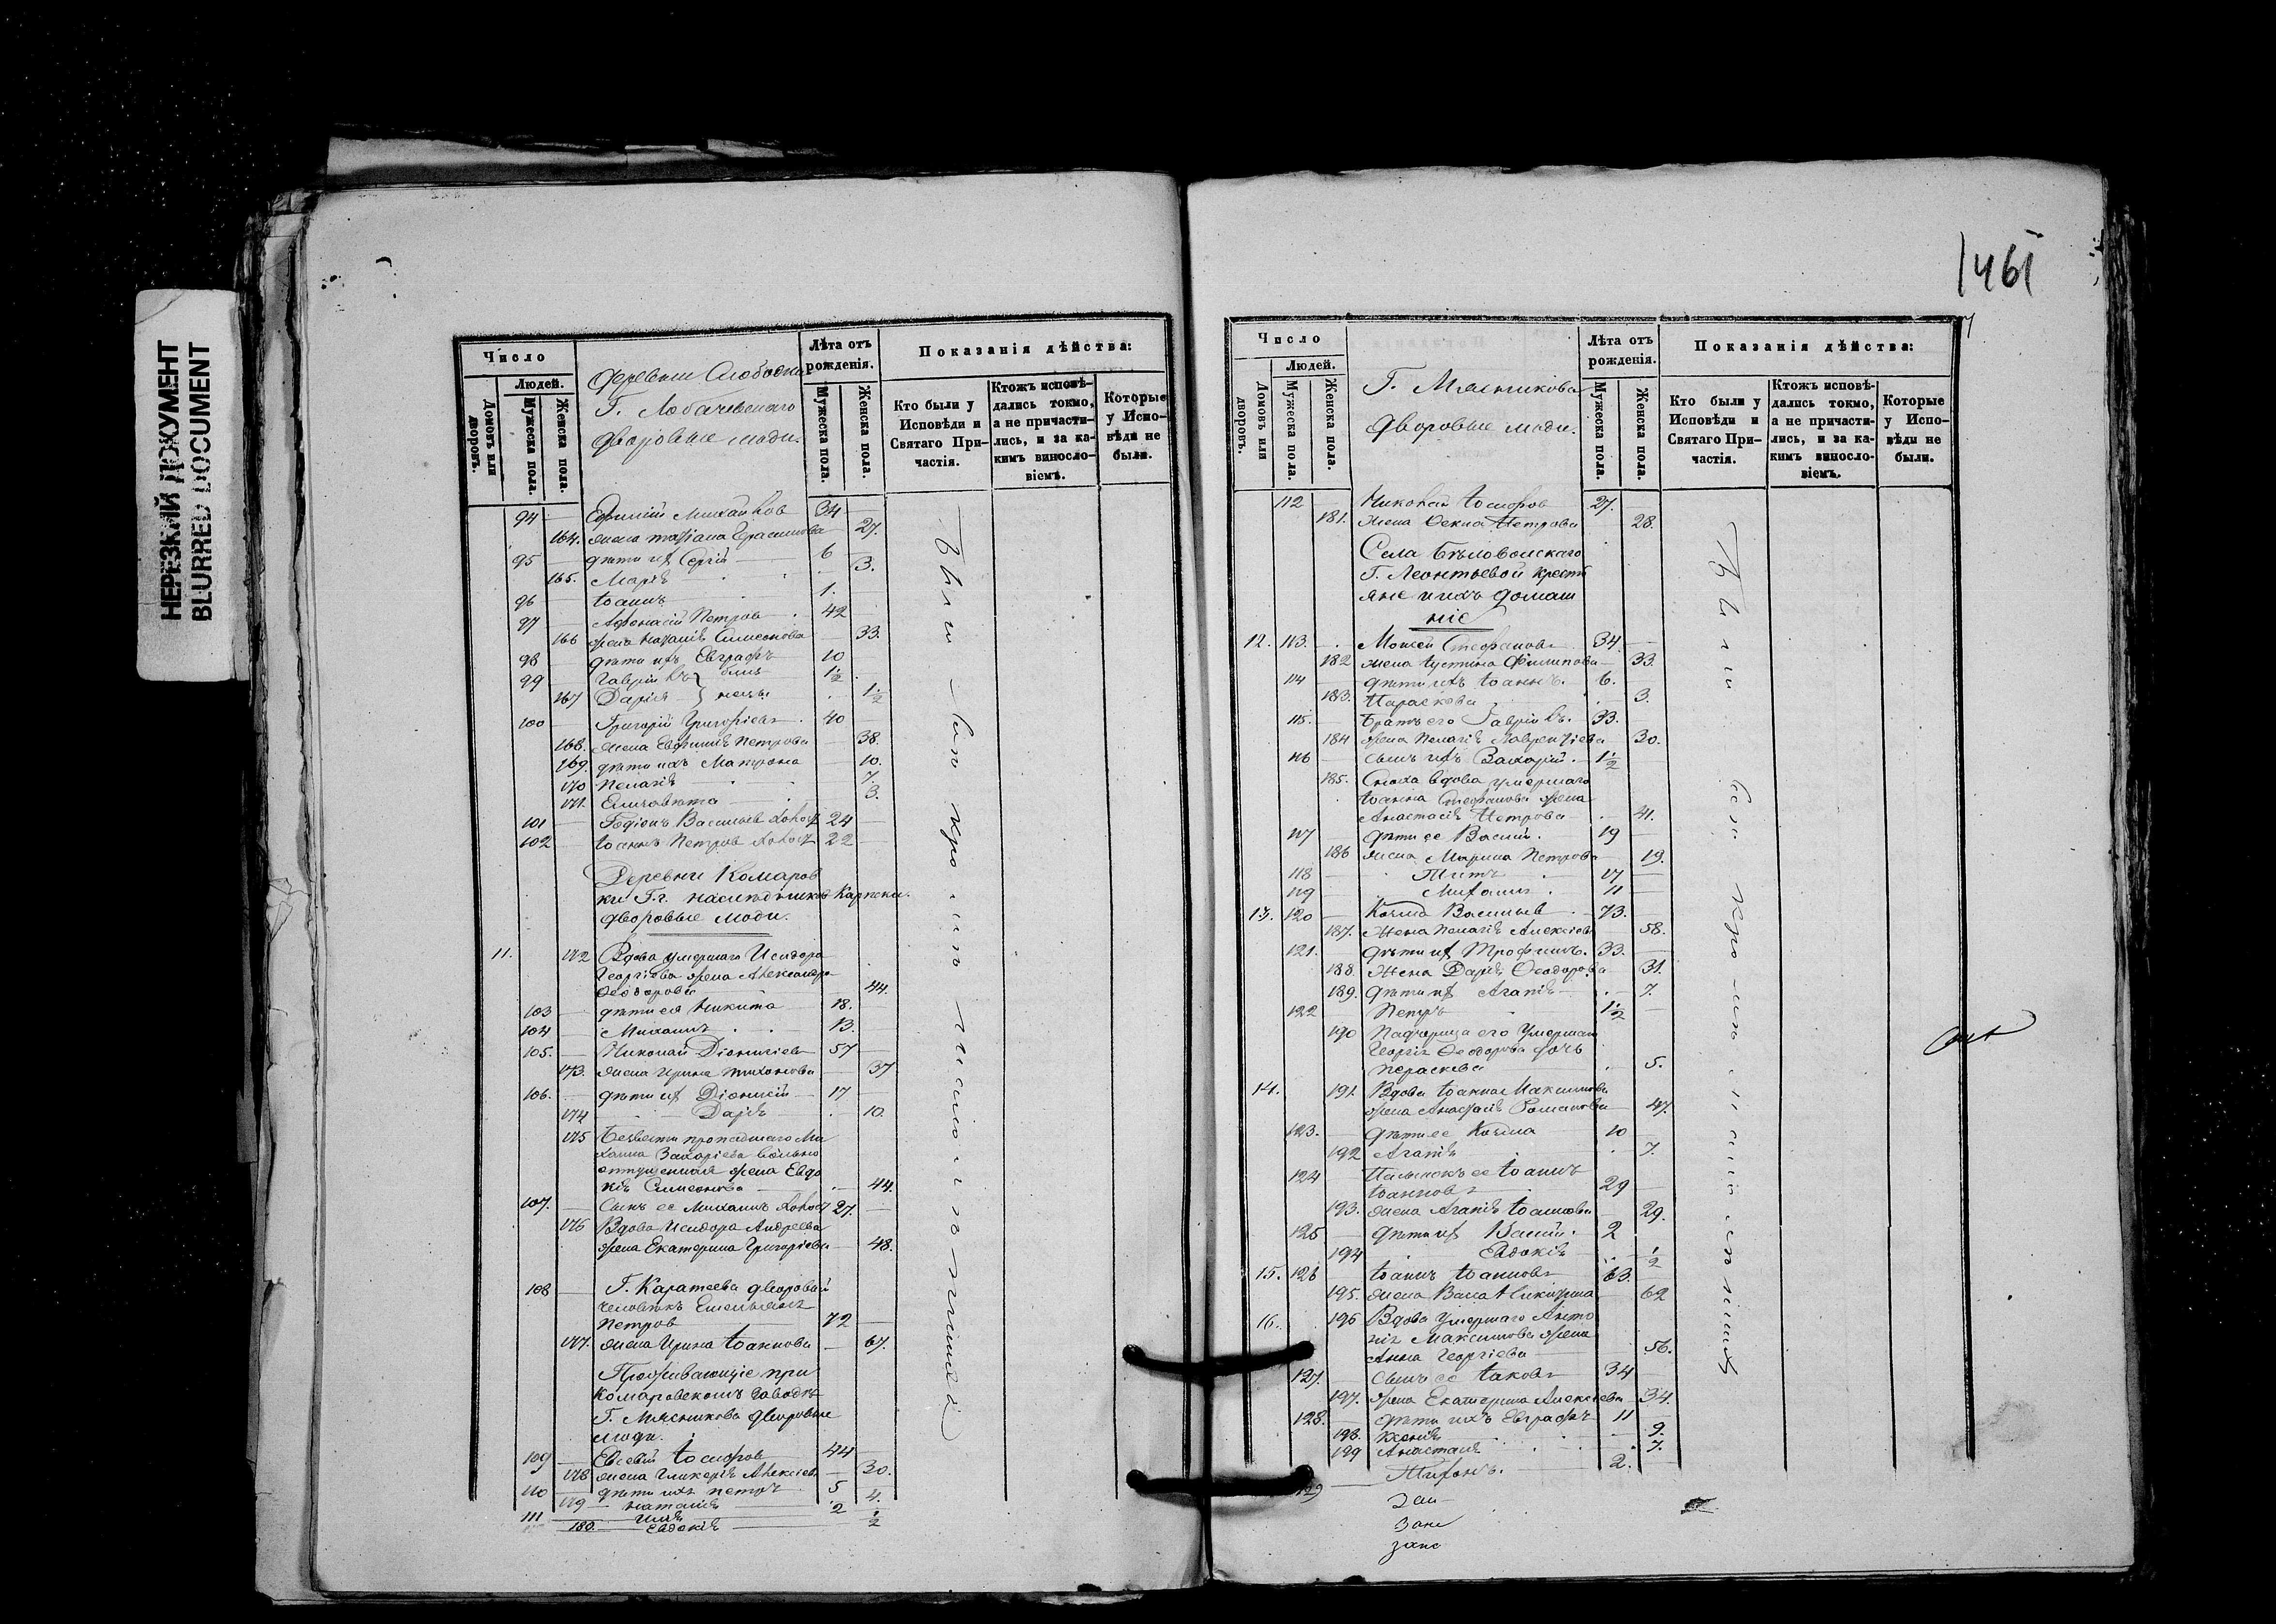 НЕРЕЗКИЙ ДОКУМЕНТ
BLURRED DOCUMENT
1461
Число
Людей.
Домовъ или дворовъ.
Мужеска пола.
Женска пола.
Деревни Слободки
Г. Лобачевскаго
дворовые люди.
Лѣта отъ рожденія.
Мужеска пола.
Женска пола.
Показанія дѣйства:
Кто были у Исповѣди и Святаго При-частія.
Ктожъ исповѣ-дались токмо, а не причасти-лись, и за ка-кимъ винословіемъ.
Которые у Испо-вѣди не были.
94 Ефимій Михайловъ 34
164. жена Татіана Герасимова 27.
95 дѣти ихъ Сергій 6
165. Марія 3.
96 Іоаннъ 1.
97 Афонасій Петровъ 42
166 жена Наталія Симеонова 33.
98 дѣти ихъ Евграфъ 10
99 Гавріилъ близ 1½
167 Дарія нецы 1½
100 Григорій Григоріевъ 40
168. жена Евфимія Петрова 38.
169. дѣти ихъ Матрона 10.
170 Пелагія 7.
171. Елисавета 3.
101 Родіонъ Васильевъ холост 24
102 Іоаннъ Петровъ холост 22
Деревни Комаров
ки Г.г. наслѣдниковъ Карпеки.
дворовые люди.
11. 172 Вдова умершаго Исидора
Георгіева жена Александра
Феодорова 44.
103 дѣти ея Никита 18.
104 Михаилъ 13.
105. Николай Діонисіевъ 57
173. жена Ирина Тихонова 37
106. дѣти их Діонисій 17
174 Дарія 10
175 Безвести пропадшаго Ми
хаила Захаріева вольно
отпущенная жена Евдо
кія Симеонова 44.
107. Сынъ ее Михаилъ холост 27.
176 Вдова Исидора Андреева
жена Екатерина Григоріева 48.
108 Г. Каратеева дворовый
человѣкъ Емельянъ
Петровъ 72
177. жена Ирина Іоаннова 67.
Проживающіе при
Комаровскомъ заводѣ
Г. Мясникова дворовые
люди.
109 Евсевій Іосифовъ 44
178 жена Гликерія Алексіева 30.
110 дѣти ихъ Петръ 5
179 Наталія 4.
111 Илія 2
180. Евдокія ½
Были
Число
Людей.
Домовъ или дворовъ.
Мужеска пола.
Женска пола.
Г. Мясникова
дворовые люди.
Лѣта отъ рожденія.
Мужеска пола.
Женска пола.
Показанія дѣйства:
Кто были у Исповѣди и Святаго При-частія.
Ктожъ исповѣ-дались токмо, а не причасти-лись, и за ка-кимъ винословіемъ.
Которые у Испо-вѣди не были.
112 Николай Іосифовъ 27.
181. жена Фекла Петрова 28.
Села Бѣловодскаго
Г. Леонтьевой крестъ
яне и ихъ домаш
ніе
12. 113. Моисей Стефановъ 34.
182 жена Іустина Филипова 33.
114 дѣти ихъ Іоаннъ. 6.
183. Параскева 3.
115. Братъ его Гавріилъ. 33.
184 жена Пелагія Лаврентіева 30.
116 сынъ ихъ Захарій. 1½
185. Сноха вдова умершаго
Іоанна Стефанова жена
Анастасія Петрова 41.
117 дѣти ее Василій. 19
186 жена Марина Петрова 19.
118 Титъ 17
119 Михаилъ 11
13. 120 Козма Васильевъ 73.
187. Жена Пелагія Алексіева 58.
121. дѣти их Трофимъ. 33.
188. Жена Дарія Феодорова 31.
189. дѣти их Агапія 7.
122 Петръ 1½
190 Падчерица его умершаго
Георгія Феодорова дочь
Параскева 5.
14. 191. Вдова Іоанна Максимова
жена Анастасія Романова 47.
123. дѣти ее Козма 10
192 Агапія 7.
124 Пасынокъ ее Іоаннъ
Іоанновъ 29
193. жена Агапія Іоаннова 29.
125 дѣти их Василій. 2
194 Евдокія ½
15. 126 Іоаннъ Іоанновъ 63.
195. жена Васса 62
16. 196 Вдова умершаго Анто
нія Максимова жена
Анна Георгіева 56.
127. сынъ ее Іаковъ 34
197. жена Екатерина Алексіева 34.
128. дѣти ихъ Евграфъ 11
198. Ксенія 9.
199 Анастасія 7.
129 Тихонъ. 2.
Были